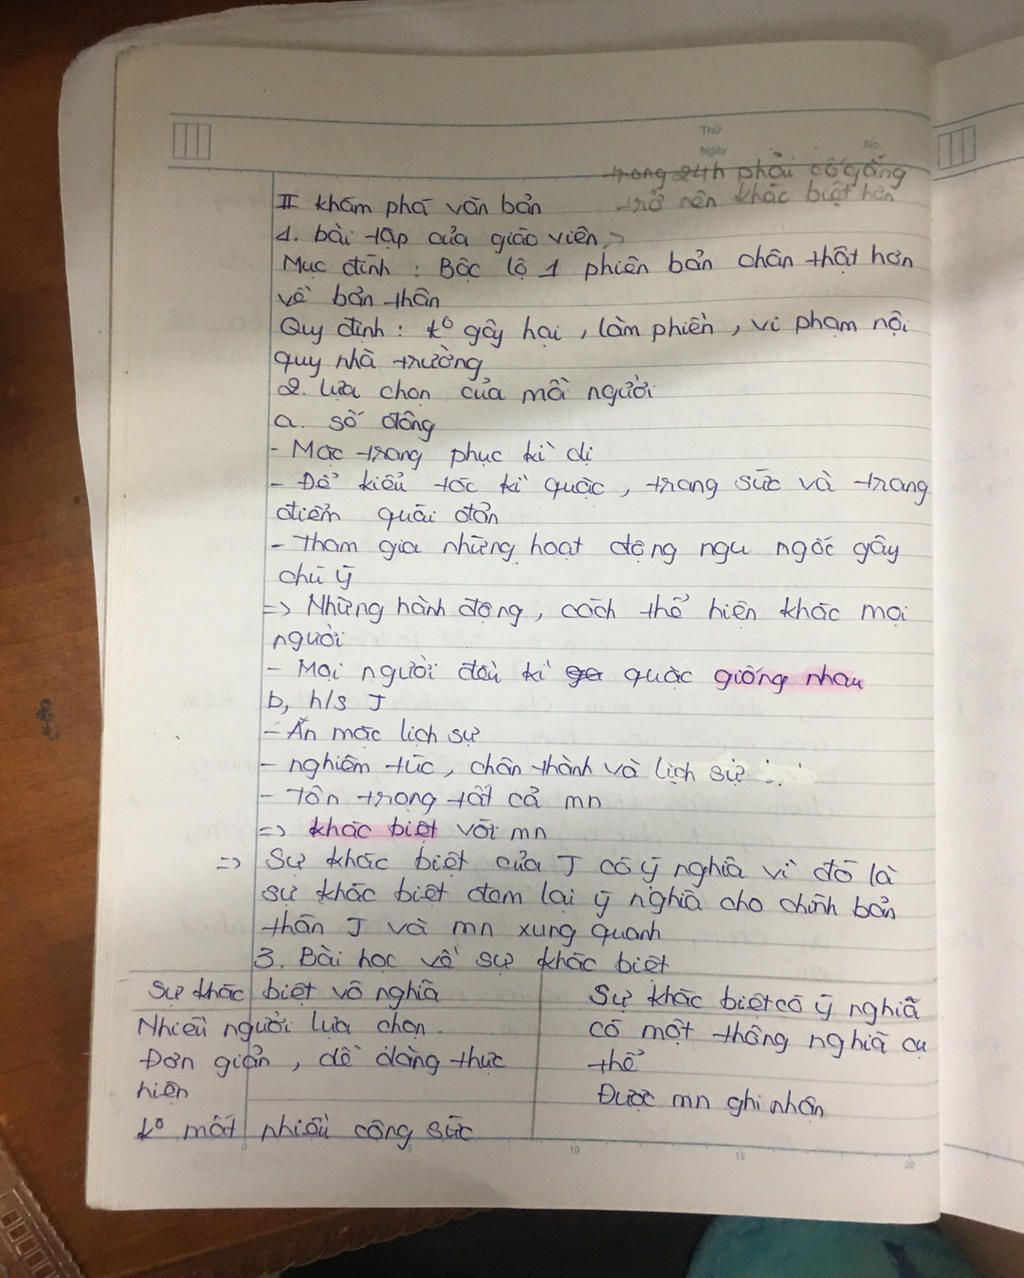 Thứ
Ngày
No.
trong 24h phải cố gắng
trở nên khác biệt hơn
II khám phá văn bản
1. bài tập của giáo viên
Mục đính : Bộc lộ 1 phiên bản chân thật hơn
về bản thân
Quy định : k⁰ gây hại , làm phiền , vi phạm nội
quy nhà trường
2. lựa chọn của mỗi người
a. số đông
- Mặc trang phục kì dị
- Để kiểu tóc kì quặc , trang sức và trang
điểm quái đản
- Tham gia những hoạt động ngu ngốc gây
chú ý
=> Những hành động , cách thể hiện khác mọi
người
- Mọi người đều kì quặc giống nhau
b, h/s J
- Ăn mặc lịch sự
- nghiêm túc , chân thành và lịch sự
- Tôn trọng tất cả mn
=> khác biệt với mn
=> Sự khác biệt của J có ý nghĩa vì đó là
sự khác biệt đem lại ý nghĩa cho chính bản
thân J và mn xung quanh
3. Bài học về sự khác biệt
Sự khác biệt vô nghĩa
Nhiều người lựa chọn .
Đơn giản , dễ dàng thực
hiện
k⁰ mất nhiều công sức
Sự khác biệt có ý nghĩã
có một thông nghĩã cụ
thể
Được mn ghi nhận
0 5 10 15 20